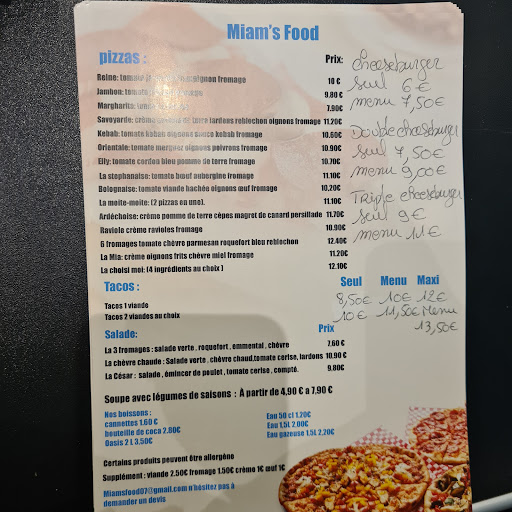 Miam's Food
pizzas :
Prix:
Reine: tomate champignon fromage 10 €
Jambon: tomate fromage 9.80 €
Margharita: 7.90€
Savoyarde: crème de terre lardons reblochon oignons fromage 11.20€
Kebab: tomate kebab oignons sauce kebab fromage 10.60€
Orientale: tomate merguez oignons poivrons fromage 10.90€
Elly: tomate cordon bleu pomme de terre fromage 10.70€
La stephanaise: tomate bœuf aubergine fromage 11.10€
Bolognaise: tomate viande hachée oignons œuf fromage 10.20€
La moite-moite: (2 pizzas au une). 11.10€
Ardéchoise: crème pomme de terre cèpes magret de canard persillade 11.70€
Raviole crème ravioles fromage 10.90€
6 fromages tomate chèvre parmesan roquefort bleu reblochon 12.40€
La Mia: crème oignons frits chèvre miel fromage 11.20€
La choisi moi: (4 ingrédients au choix ) 12.10€
cheeseburger
seul 6€
menu 7,50€
Double cheeseburger
seul 7,50€
menu 9,00€
Triple cheeseburger
seul 9€
menu 11€
Tacos :
Seul Menu Maxi
Tacos 1 viande 8,50€ 10€ 12€
Tacos 2 viandes au choix 10€ 11,50€ Menu
13,50€
Salade:
Prix
La 3 fromages : salade verte , roquefort , emmental , chèvre 7.60 €
La chèvre chaude : Salade verte , chèvre chaud,tomate cerise, lardons 10.90 €
La César : salade , émincer de poulet , tomate cerise , compté. 9.80€
Soupe avec légumes de saisons : À partir de 4,90 € a 7,90 €
Nos boissons :
cannettes 1.60 €
bouteille de coca 2.80€
Oasis 2 l 3,50€
Eau 50 cl 1.20€
Eau 1,5L 2,00€
Eau gazeuse 1.5L 2,20€
Certains produits peuvent être allergène
Supplément : viande 2.50€ fromage 1.50€ crème 1€ œuf 1€
Miamsfood07@gmail.com n'hésitez pas à
demander un devis